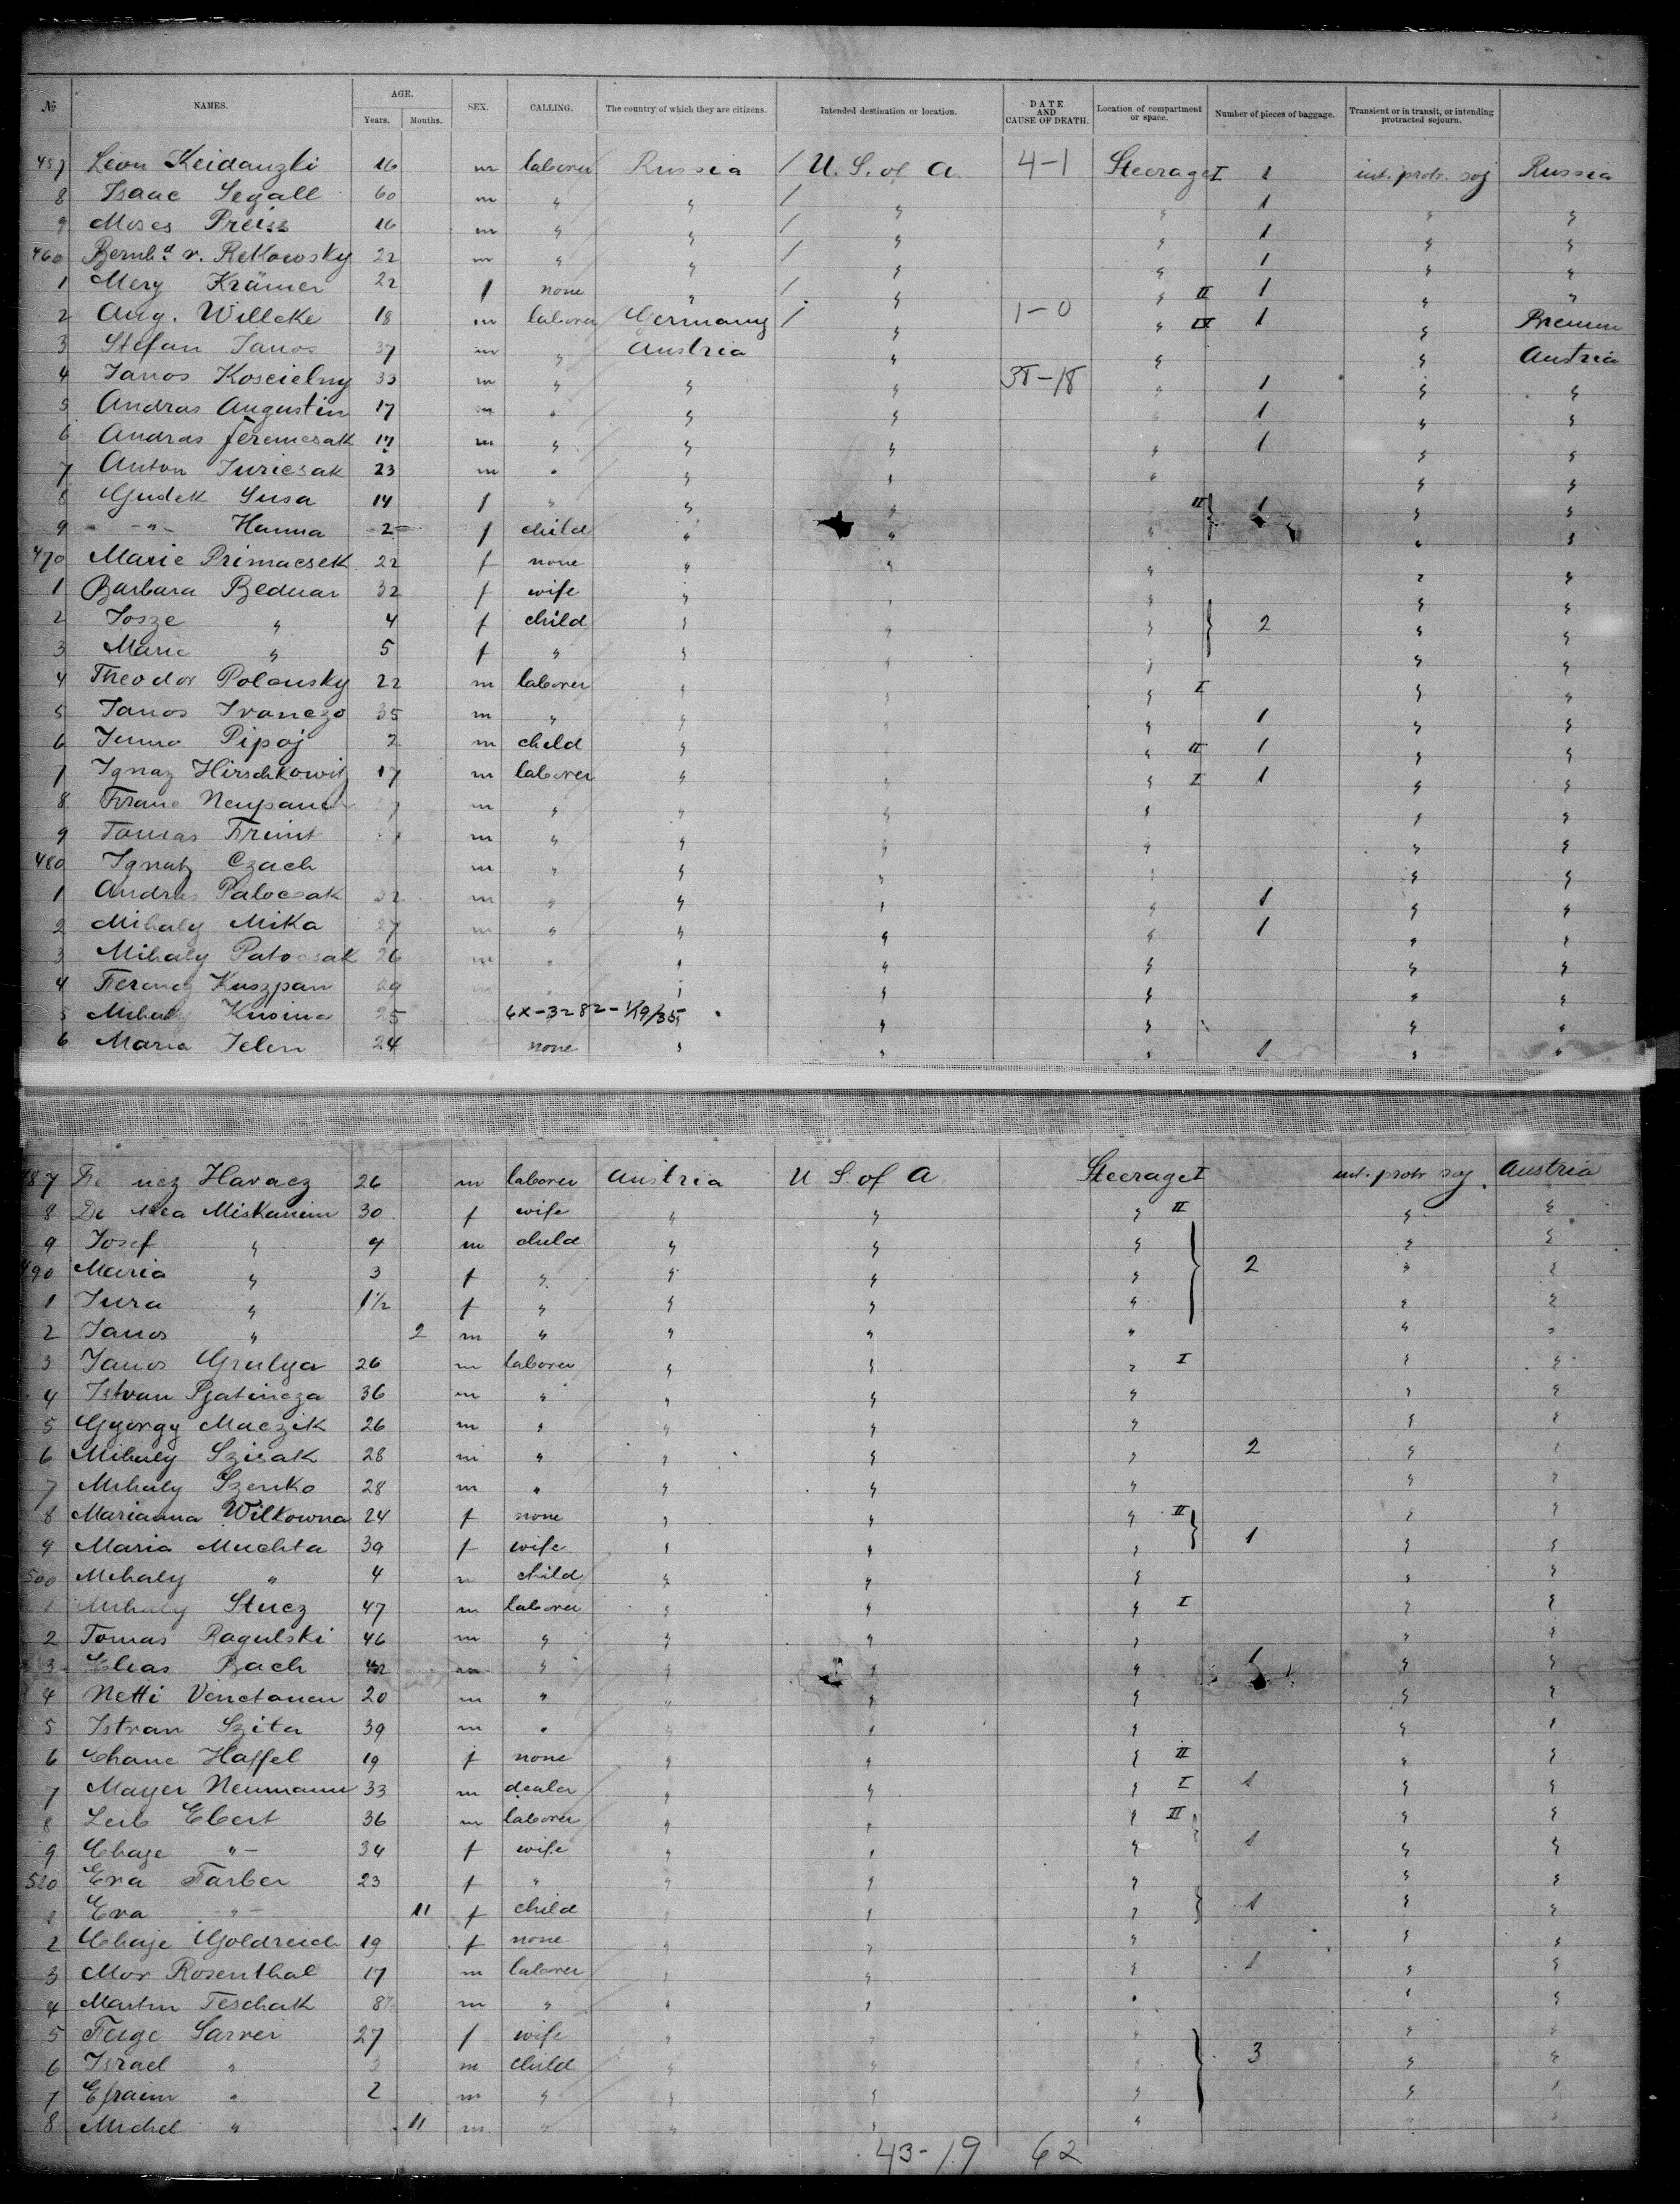 № NAMES. AGE. Years. Months. SEX. CALLING. The country of which they are citizens. Intended destination or location. DATE AND CAUSE OF DEATH. Location of compartment or space. Number of pieces of baggage. Transient or in transit, or intending protracted sojourn.
457 Leon Keidanzki 16 m laborer Russia / U. S. of A. 4-1 Steerage I 1 int. protr. soj Russia
8 Isaac Segall 60 m " " / " " 1 " "
9 Moses Preiss 16 m " " / " " 1 " "
460 Bernhd. v. Rekowsky 22 m " " / " " 1 " "
1 Mery Krämer 22 f none " / " " II 1 " "
2 Aug. Willeke 18 m laborer Germany / " 1-0 " IV 1 " Bremen
3 Stefan Janos 37 m " Austria " " " Austria
4 Janos Koscielny 33 m " " " 38-18 " 1 " "
5 Andras Augustin 17 m " " " " 1 " "
6 Andras Jeremcsak 17 m " " " " 1 " "
7 Anton Juricsak 23 m " " " " " "
8 Gudek Susa 14 f " " " " II 1 " "
9 - " - Hanna 2 f child " " " " "
470 Marie Primacsek 22 f none " " " " "
1 Barbara Bednar 32 f wife " " " " "
2 Josze " 4 f child " " " 2 " "
3 Marie " 5 f " " " " " "
4 Theodor Polansky 22 m laborer " " " I " "
5 Janos Ivanczo 35 m " " " " 1 " "
6 Janos Pipaj 2 m child " " " II 1 " "
7 Ignaz Hirschkowitz 17 m laborer " " " I 1 " "
8 Franc m " " " " " "
9 Tomas Frint m " " " " " "
480 Ignatz Czach m " " " " " "
1 Andras Palocsak 32 m " " " " 1 " "
2 Mihaly Mika 27 m " " " " 1 " "
3 Mihaly Patocsak 26 m " " " " " "
4 Ferencz Kuszpan 29 " " " " "
5 Mihaly 25 6X-3282-1/19/35 " " " " "
6 Maria Jelen 24 none " " " 1 " "
487 Fe ncz Havacz 26 m laborer Austria U S. of A Steerage I int. protr soj. Austria
8 Miskanin 30 f wife " " " II " "
9 Josef " 4 m child " " " " "
490 Maria " 3 f " " " " 2 " "
1 Jura " 1½ f " " " " " "
2 Janos " 2 m " " " " " "
3 Janos Grulya 26 m laborer " " " I " "
4 Istvan Pjatincza 36 m " " " " " "
5 György Maczik 26 m " " " " " "
6 Mihaly Szisak 28 m " " " " 2 " "
7 Mihaly Szenko 28 m " " " " " "
8 Marianna Wilkowna 24 f none " " " II " "
9 Maria Muchta 39 f wife " " " 1 " "
500 Mihaly " 4 m child " " " " "
1 Mihaly Stucz 47 m laborer " " " I " "
2 Tomas Ragulski 46 m " " " " " "
3 Elias Bach 42 m " " " " 1 " "
4 Netti 20 m " " " " " "
5 Istvan Szita 39 m " " " " " "
6 Chane Haffel 19 f none " " " II " "
7 Mayer Neumann 33 m dealer " " " I 1 " "
8 Leib Ebert 36 m laborer " " " II " "
9 Chaje " - 34 f wife " " " 1 " "
510 Eva Farber 23 f " " " " " "
1 Eva - " - 11 f child " " " 1 " "
2 Chaje Goldreich 19 f none " " " " "
3 Mor Rosenthal 17 m laborer " " " 1 " "
4 Martin Teschak m " " " " " "
5 Feige Sarver 27 f wife " " " " "
6 Israel " 3 m child " " " 3 " "
7 Efraim " 2 m " " " " " "
8 Michel " 11 m " " " " " "
43-19 62